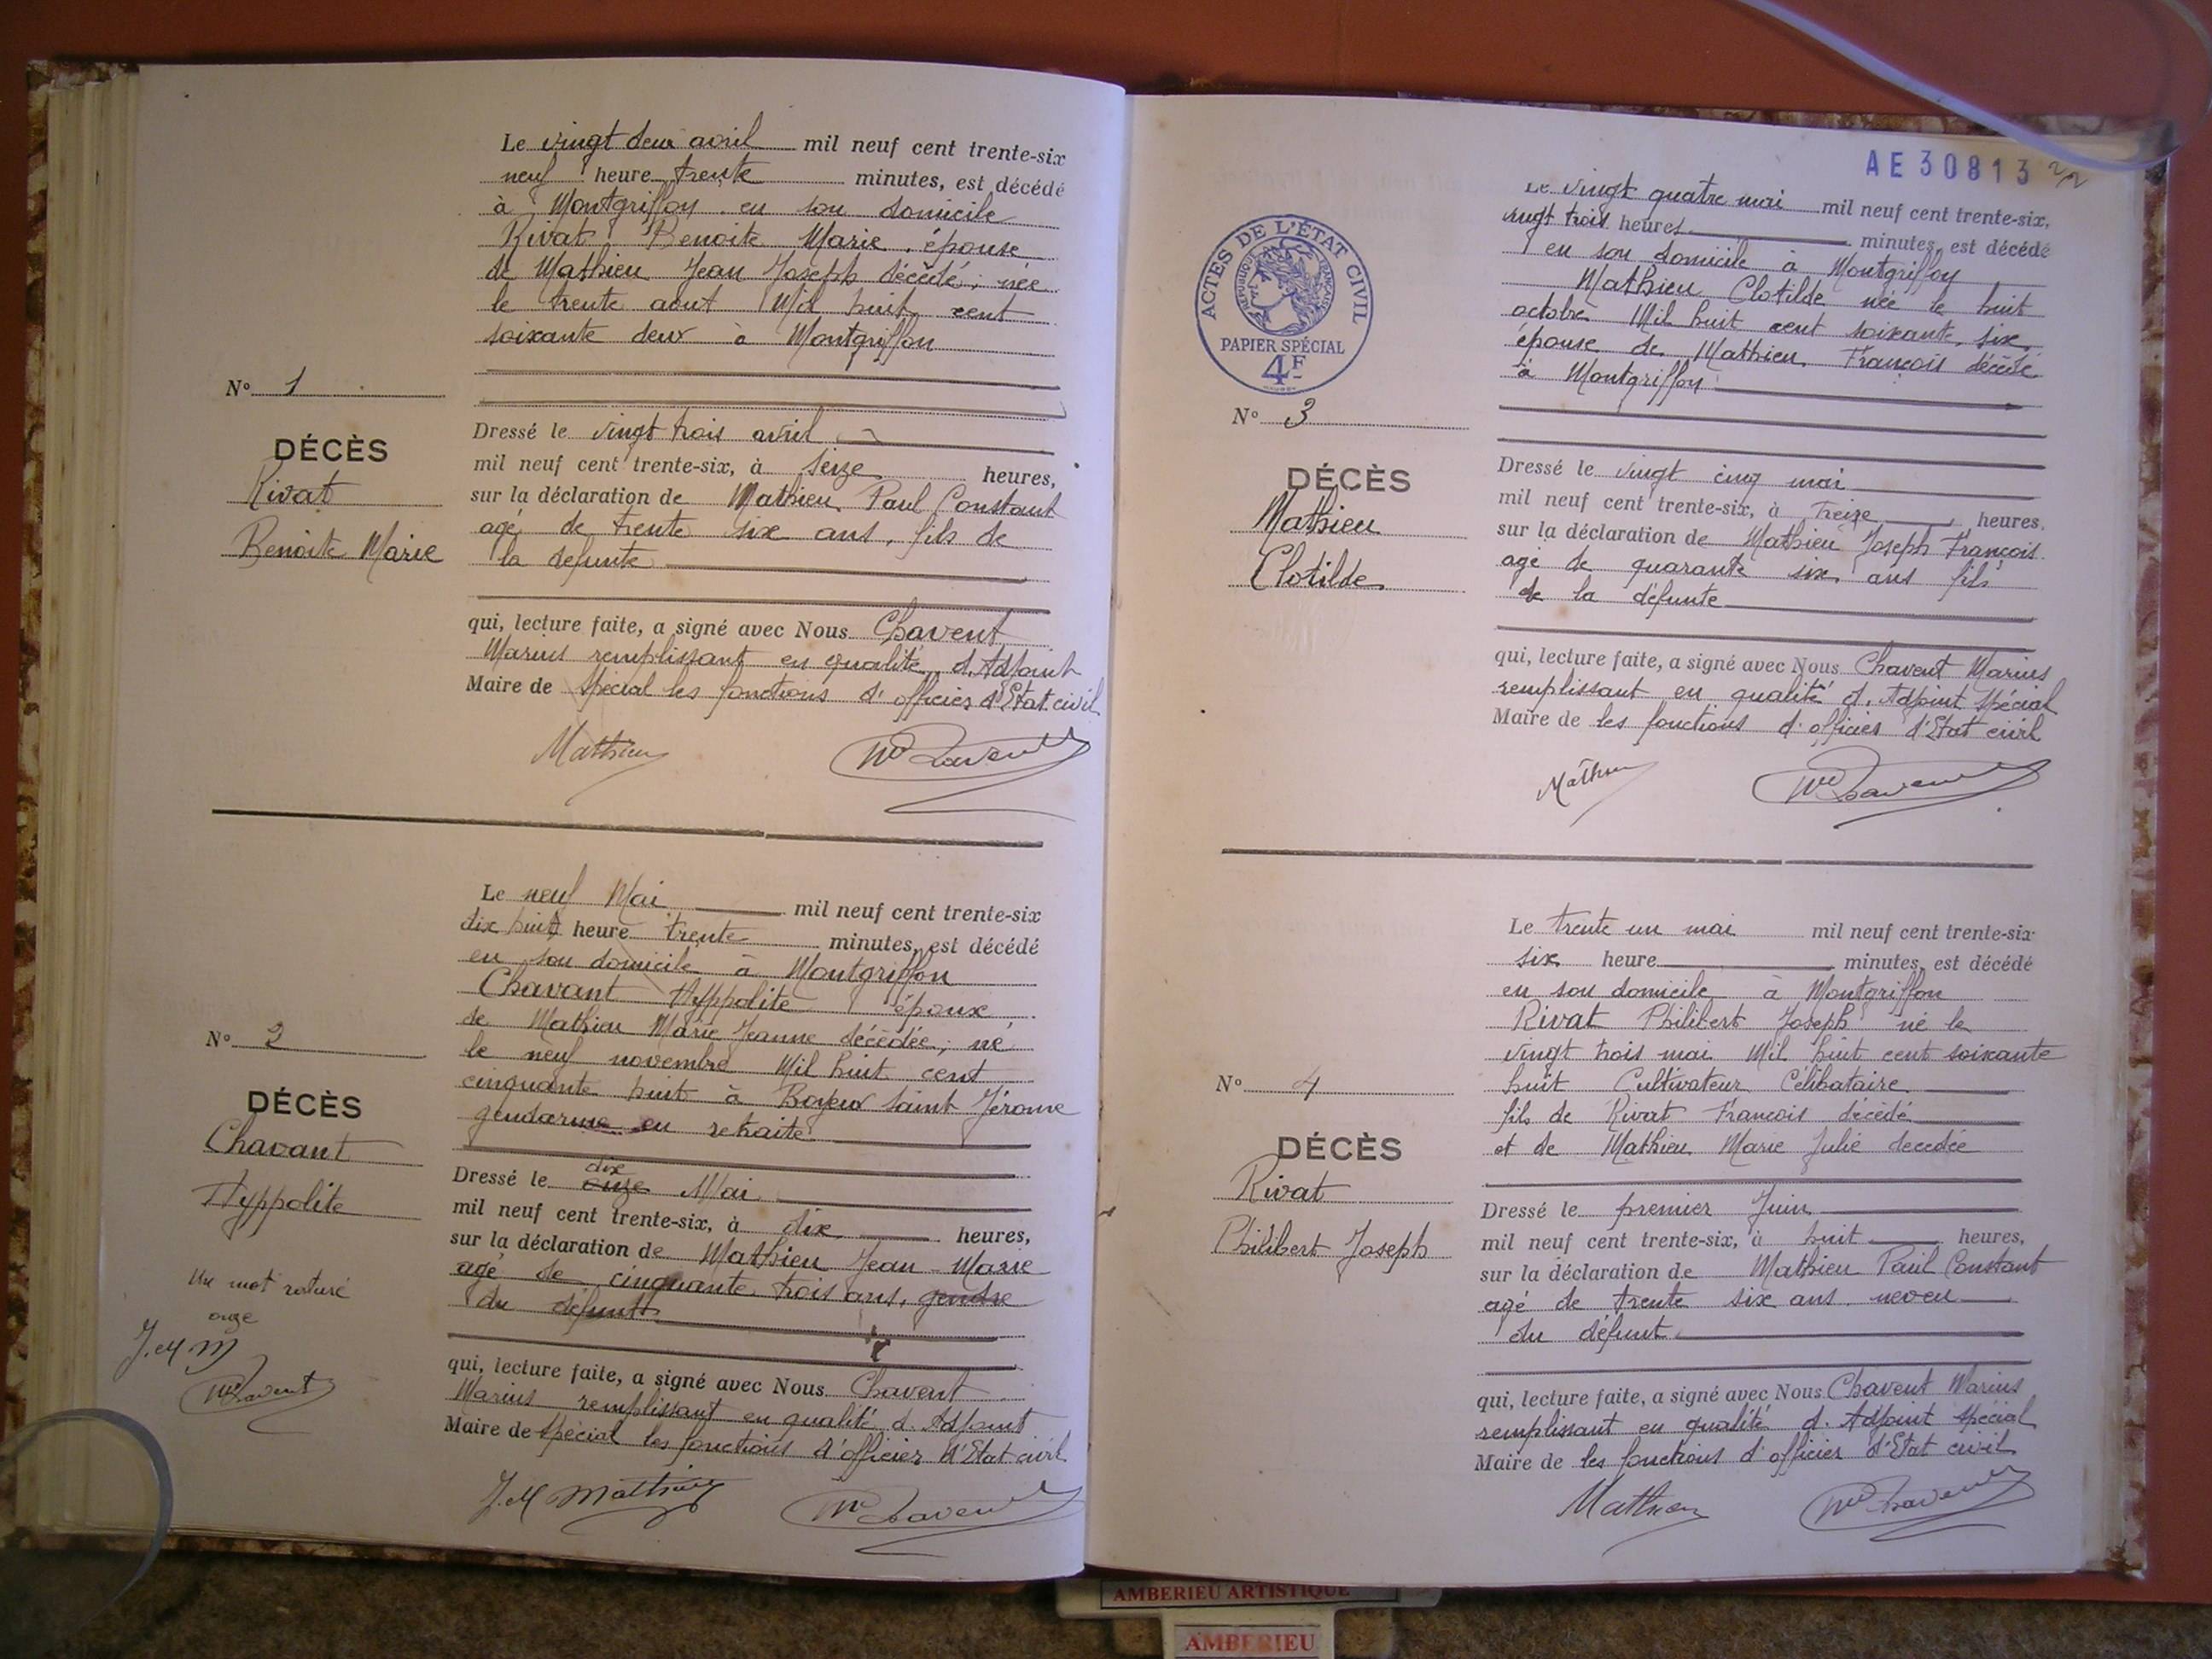 Le vingt deux avril mil neuf cent trente-six
neuf heure trente minutes, est décédé
à Montgriffon en son domicile
Rivat Benoite Marie, épouse
de Mathieu Jean Joseph décédé, née
le trente aout Mil huit cent
soixante deux à Montgriffon
N° 1
DÉCÈS
Rivat
Benoite Marie
Dressé le vingt trois avril
mil neuf cent trente-six, à seize heures,
sur la déclaration de Mathieu Paul Constant
agé de trente six ans, fils de
la defunte
qui, lecture faite, a signé avec Nous Chavent
Marius remplissant en qualité d'Adjoint
Maire de spécial les fonctions d'officier d'Etat civil
Mathieu
M Chavent
Le neuf Mai mil neuf cent trente-six
dix huit heure trente minutes, est décédé
en son domicile à Montgriffon
Chavant Hyppolite époux
de Mathieu Marie Jeanne décédée, né
le neuf novembre Mil huit cent
cinquante huit à Boyeux Saint Jérome
gendarme en retraite
N° 2
DÉCÈS
Chavant
Hyppolite
Un mot raturé
onze
J.M M
M Chavent
dix
Dressé le onze Mai
mil neuf cent trente-six, à dix heures,
sur la déclaration de Mathieu Jean-Marie
agé de cinquante trois ans, gendre
du défunt
qui, lecture faite, a signé avec Nous Chavent
Marius remplissant en qualité d'Adjoint
Maire de spécial les fonctions d'officier d'Etat civil
J.M Mathieu
M Chavent
AE30813
2/2
ACTES DE L'ÉTAT CIVIL
RÉPUBLIQUE FRANÇAISE
PAPIER SPÉCIAL
4F
Le vingt quatre mai mil neuf cent trente-six,
vingt trois heures minutes, est décédé
en son domicile à Montgriffon
Mathieu Clotilde née le huit
octobre Mil huit cent soixante six,
épouse de Mathieu François décédé
à Montgriffon
N° 3
DÉCÈS
Mathieu
Clotilde
Dressé le vingt cinq mai
mil neuf cent trente-six, à treize heures,
sur la déclaration de Mathieu Joseph François
agé de quarante six ans fils
de la défunte
qui, lecture faite, a signé avec Nous Chavent Marius
remplissant en qualité d'Adjoint spécial
Maire de les fonctions d'officier d'Etat civil
Mathieu
M Chavent
Le trente un mai mil neuf cent trente-six
six heure minutes, est décédé
en son domicile à Montgriffon
Rivat Philibert Joseph né le
vingt trois mai Mil huit cent soixante
huit Cultivateur Célibataire
fils de Rivat François décédé
et de Mathieu Marie Julie decedée
N° 4
DÉCÈS
Rivat
Philibert Joseph
Dressé le premier Juin
mil neuf cent trente-six, à huit heures,
sur la déclaration de Mathieu Paul Constant
agé de trente six ans neveu
du défunt
qui, lecture faite, a signé avec Nous Chavent Marius
remplissant en qualité d'Adjoint spécial
Maire de les fonctions d'officier d'Etat civil
Mathieu
M Chavent
AMBERIEU ARTISTIQUE
AMBERIEU